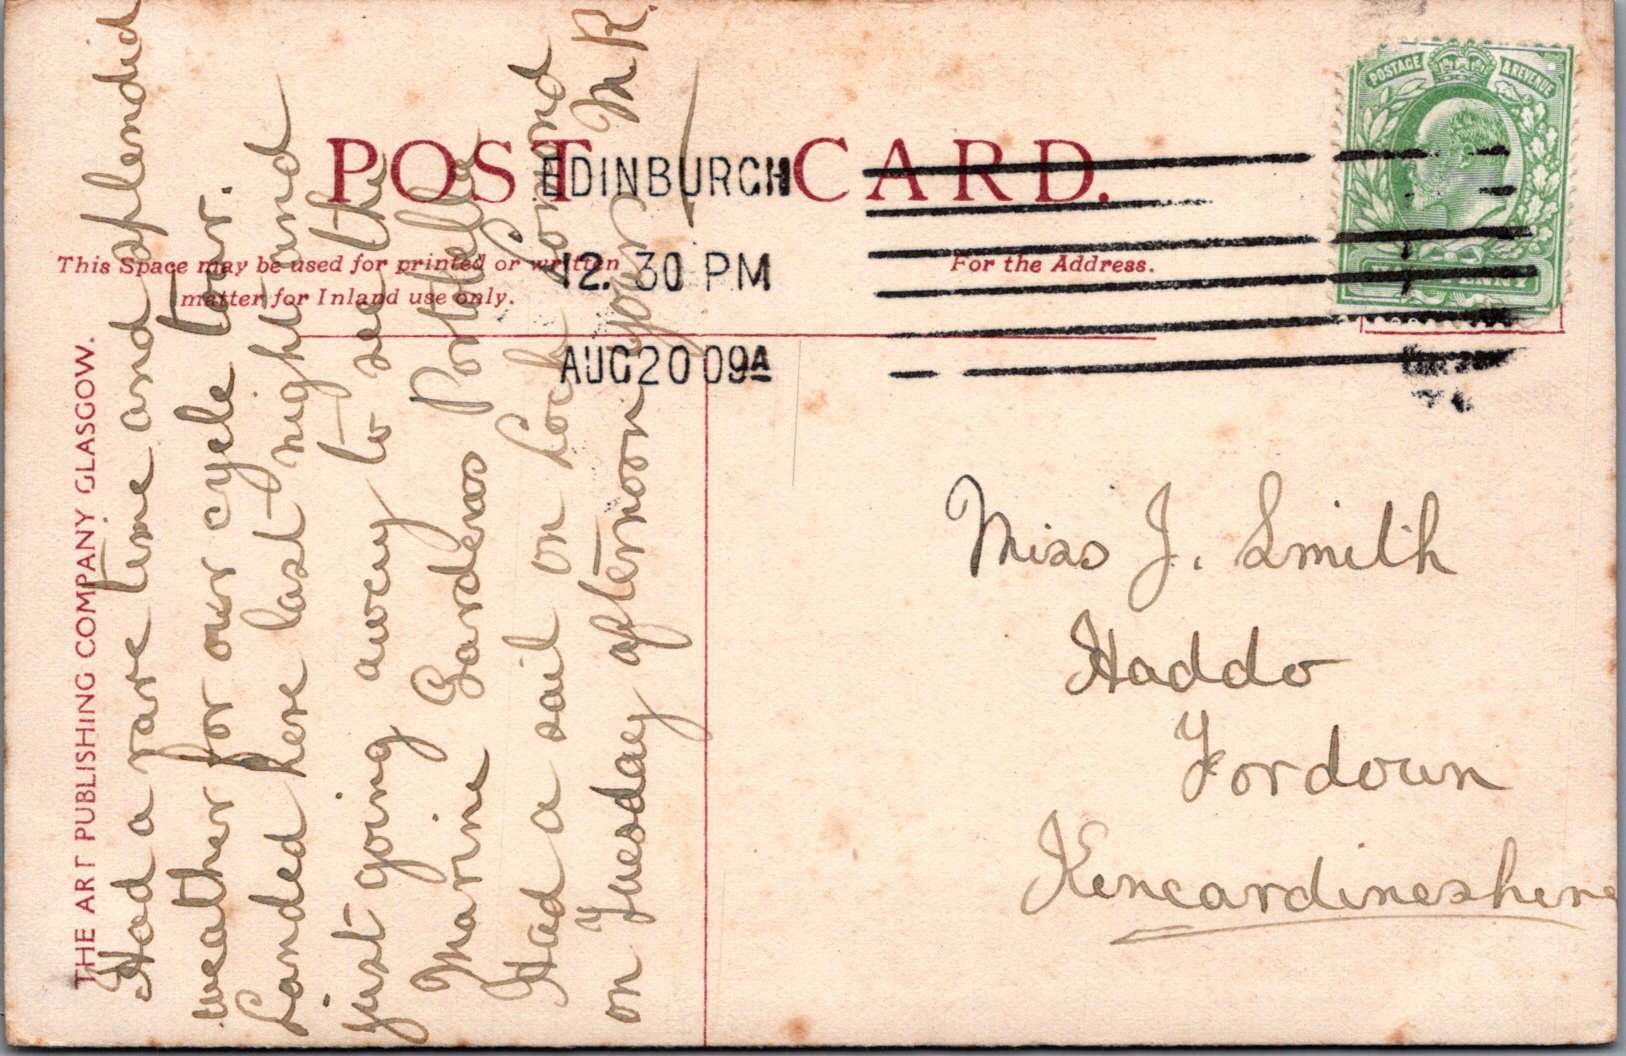 POST CARD.
This Space may be used for printed or written
matter for Inland use only.
For the Address.
THE ART PUBLISHING COMPANY GLASGOW.
EDINBURGH
12. 30 PM
AUG 20 09A
POSTAGE & REVENUE
PENNY
Had a rare time and splendid
weather for our cycle tour.
Landed here last night and
just going away to see the
Marine Gardens Portobello
Had a sail on Loch Lomond
on Tuesday afternoon your
M. R.
Miss J. Smith
Haddo
Fordoun
Kencardineshire